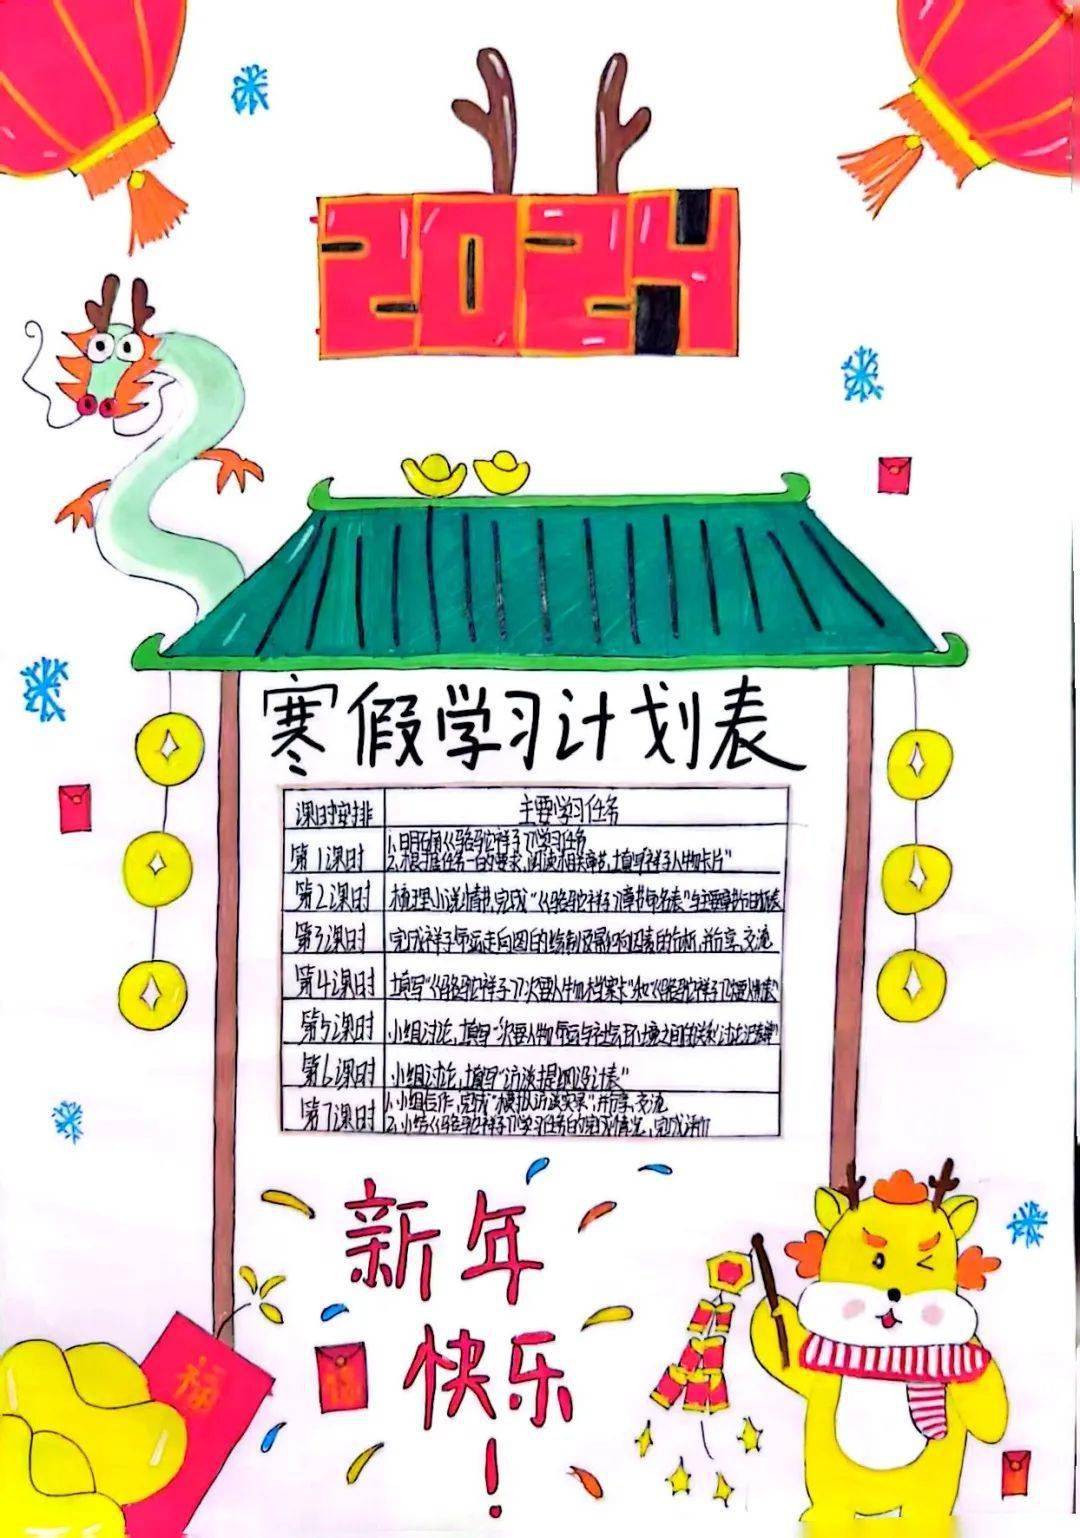 2024
寒假学习计划表
课时安排 主要学习任务
第1课时 1.明确《骆驼祥子》学习任务
2.根据任务一的要求,阅读相关章节,填写"祥子人物卡片"
第2课时 梳理小说情节,完成"《骆驼祥子》章节命名表"与主要章节
第3课时 完成祥子命运走向图的绘制及影响因素的分析,并分享、交流
第4课时 填写"《骆驼祥子》次要人物档案卡"和"《骆驼祥子》次要人物表"
第5课时 小组讨论,填写"次要人物命运与社会环境之间的关系"讨论记录单"
第6课时 小组讨论,填写"访谈提纲设计表"
第7课时 1.小组合作,完成"模拟访谈实录",并分享、交流
2.小结《骆驼祥子》学习任务的完成情况,完成活动
新年
快乐
!
福
福